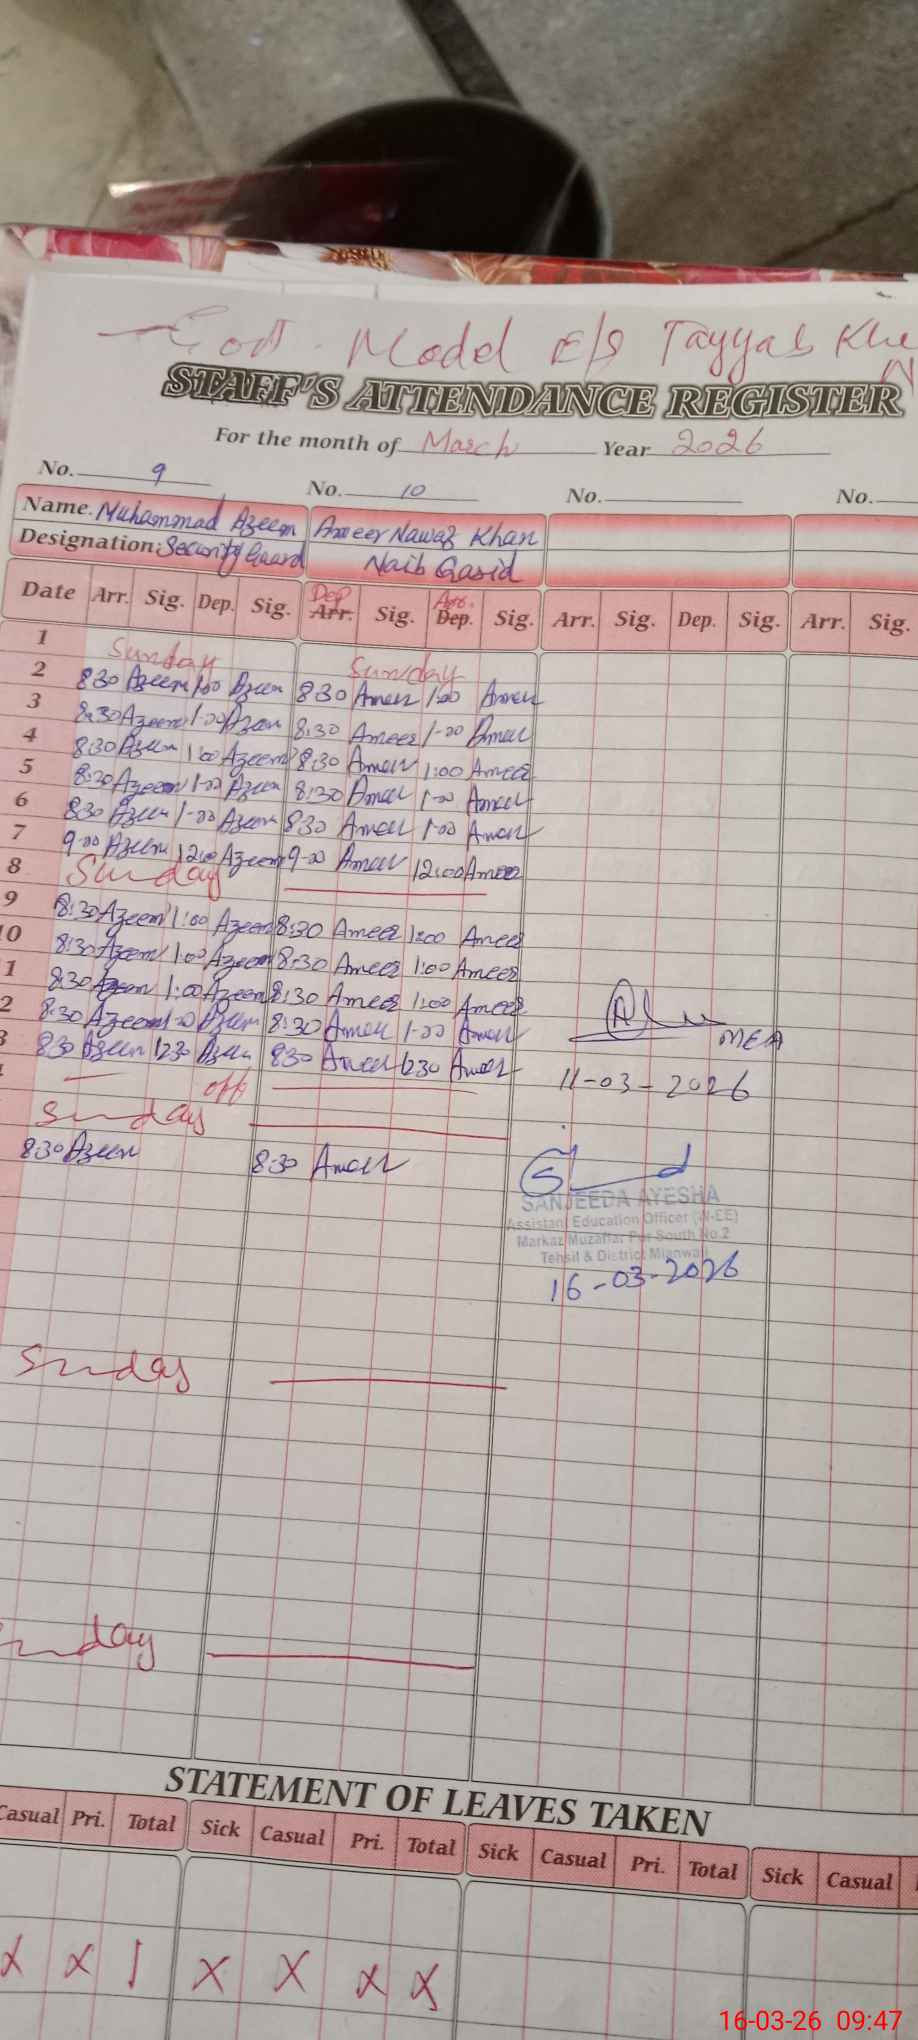 Govt. Model E/S Tayyab Khe
STAFF'S ATTENDANCE REGISTER
For the month of March Year 2026
No. 9 No. 10 No. No.
Name. Muhammad Azeem Ameer Nawaz Khan
Designation: Security Guard Naib Qasid
Date Arr. Sig. Dep. Sig. Dep Arr. Sig. Arr. Dep. Sig. Arr. Sig. Dep. Sig. Arr. Sig.
1 Sunday Sunday
2 830 Azeem 1:00 Azeem 830 Ameer 1:00 Ameer
3 8:30 Azeem 1-00 Azeem 8:30 Ameer 1-00 Ameer
4 830 Azeem 1:00 Azeem 8:30 Ameer 1:00 Ameer
5 8:30 Azeem 1-00 Azeem 8:30 Ameer 1-00 Ameer
6 830 Azeem 1-00 Azeem 830 Ameer 1-00 Ameer
7 9-00 Azeem 12:00 Azeem 9-00 Ameer 12:00 Ameer
8 Sunday
9 8:30 Azeem 1:00 Azeem 8:30 Ameer 1:00 Ameer
10 8:30 Azeem 1:00 Azeem 8:30 Ameer 1:00 Ameer
1 8:30 Azeem 1:00 Azeem 8:30 Ameer 1:00 Ameer
2 8:30 Azeem 1-00 Azeem 8:30 Ameer 1-00 Ameer
3 830 Azeem 1230 Azeem 830 Ameer 1230 Ameer
MEA
11-03-2026
off
Sunday
830 Azeem 830 Ameer
SANJEEDA AYESHA
Assistant Education Officer (W-EE)
Markaz Muzaffar Pur South No.2
Tehsil & District Mianwali
16-03-2026
Sunday
Sunday
STATEMENT OF LEAVES TAKEN
Casual Pri. Total Sick Casual Pri. Total Sick Casual Pri. Total Sick Casual
X X 1 X X X X
16-03-26 09:47